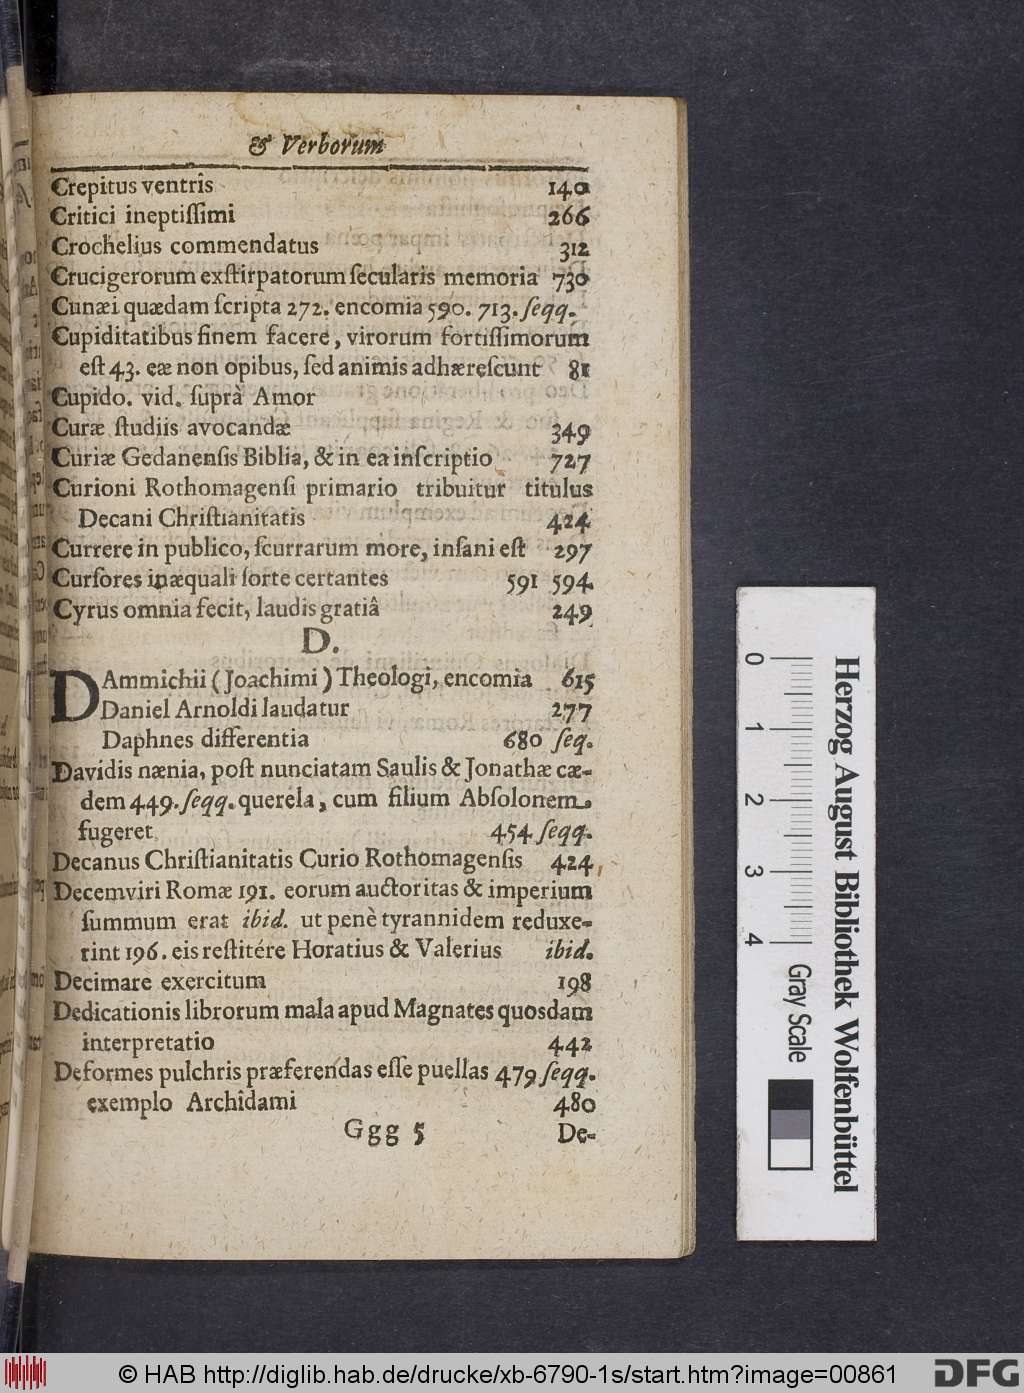 & Verborum
Crepitus ventris 140
Critici ineptiſſimi 266
Crochelius commendatus 312
Crucigerorum exſtirpatorum ſecularis memoria 730
Cunæi quædam ſcripta 272. encomia 590. 713. ſeqq.
Cupiditatibus finem facere, virorum fortiſſimorum
eſt 43. eæ non opibus, ſed animis adhæreſcunt 81
Cupido. vid. ſuprà Amor
Curæ ſtudiis avocandæ 349
Curiæ Gedanenſis Biblia, & in ea inſcriptio 727
Curioni Rothomagenſi primario tribuitur titulus
Decani Chriſtianitatis 424
Currere in publico, ſcurrarum more, inſani eſt 297
Curſores inæquali ſorte certantes 591 594
Cyrus omnia fecit, laudis gratiâ 249
D.
DAmmichii (Joachimi) Theologi, encomia 615
Daniel Arnoldi laudatur 277
Daphnes differentia 680 ſeq.
Davidis nænia, poſt nunciatam Saulis & Jonathæ cæ-
dem 449. ſeqq. querela, cum filium Abſolonem
fugeret 454 ſeqq.
Decanus Chriſtianitatis Curio Rothomagenſis 424
Decemviri Romæ 191. eorum auctoritas & imperium
ſummum erat ibid. ut penè tyrannidem reduxe-
rint 196. eis reſtitére Horatius & Valerius ibid.
Decimare exercitum 198
Dedicationis librorum mala apud Magnates quosdam
interpretatio 442
Deformes pulchris præferendas eſſe puellas 479 ſeqq.
exemplo Archidami 480
Ggg 5 De-
0 1 2 3 4
Gray Scale
Herzog August Bibliothek Wolfenbüttel
© HAB http://diglib.hab.de/drucke/xb-6790-1s/start.htm?image=00861
DFG